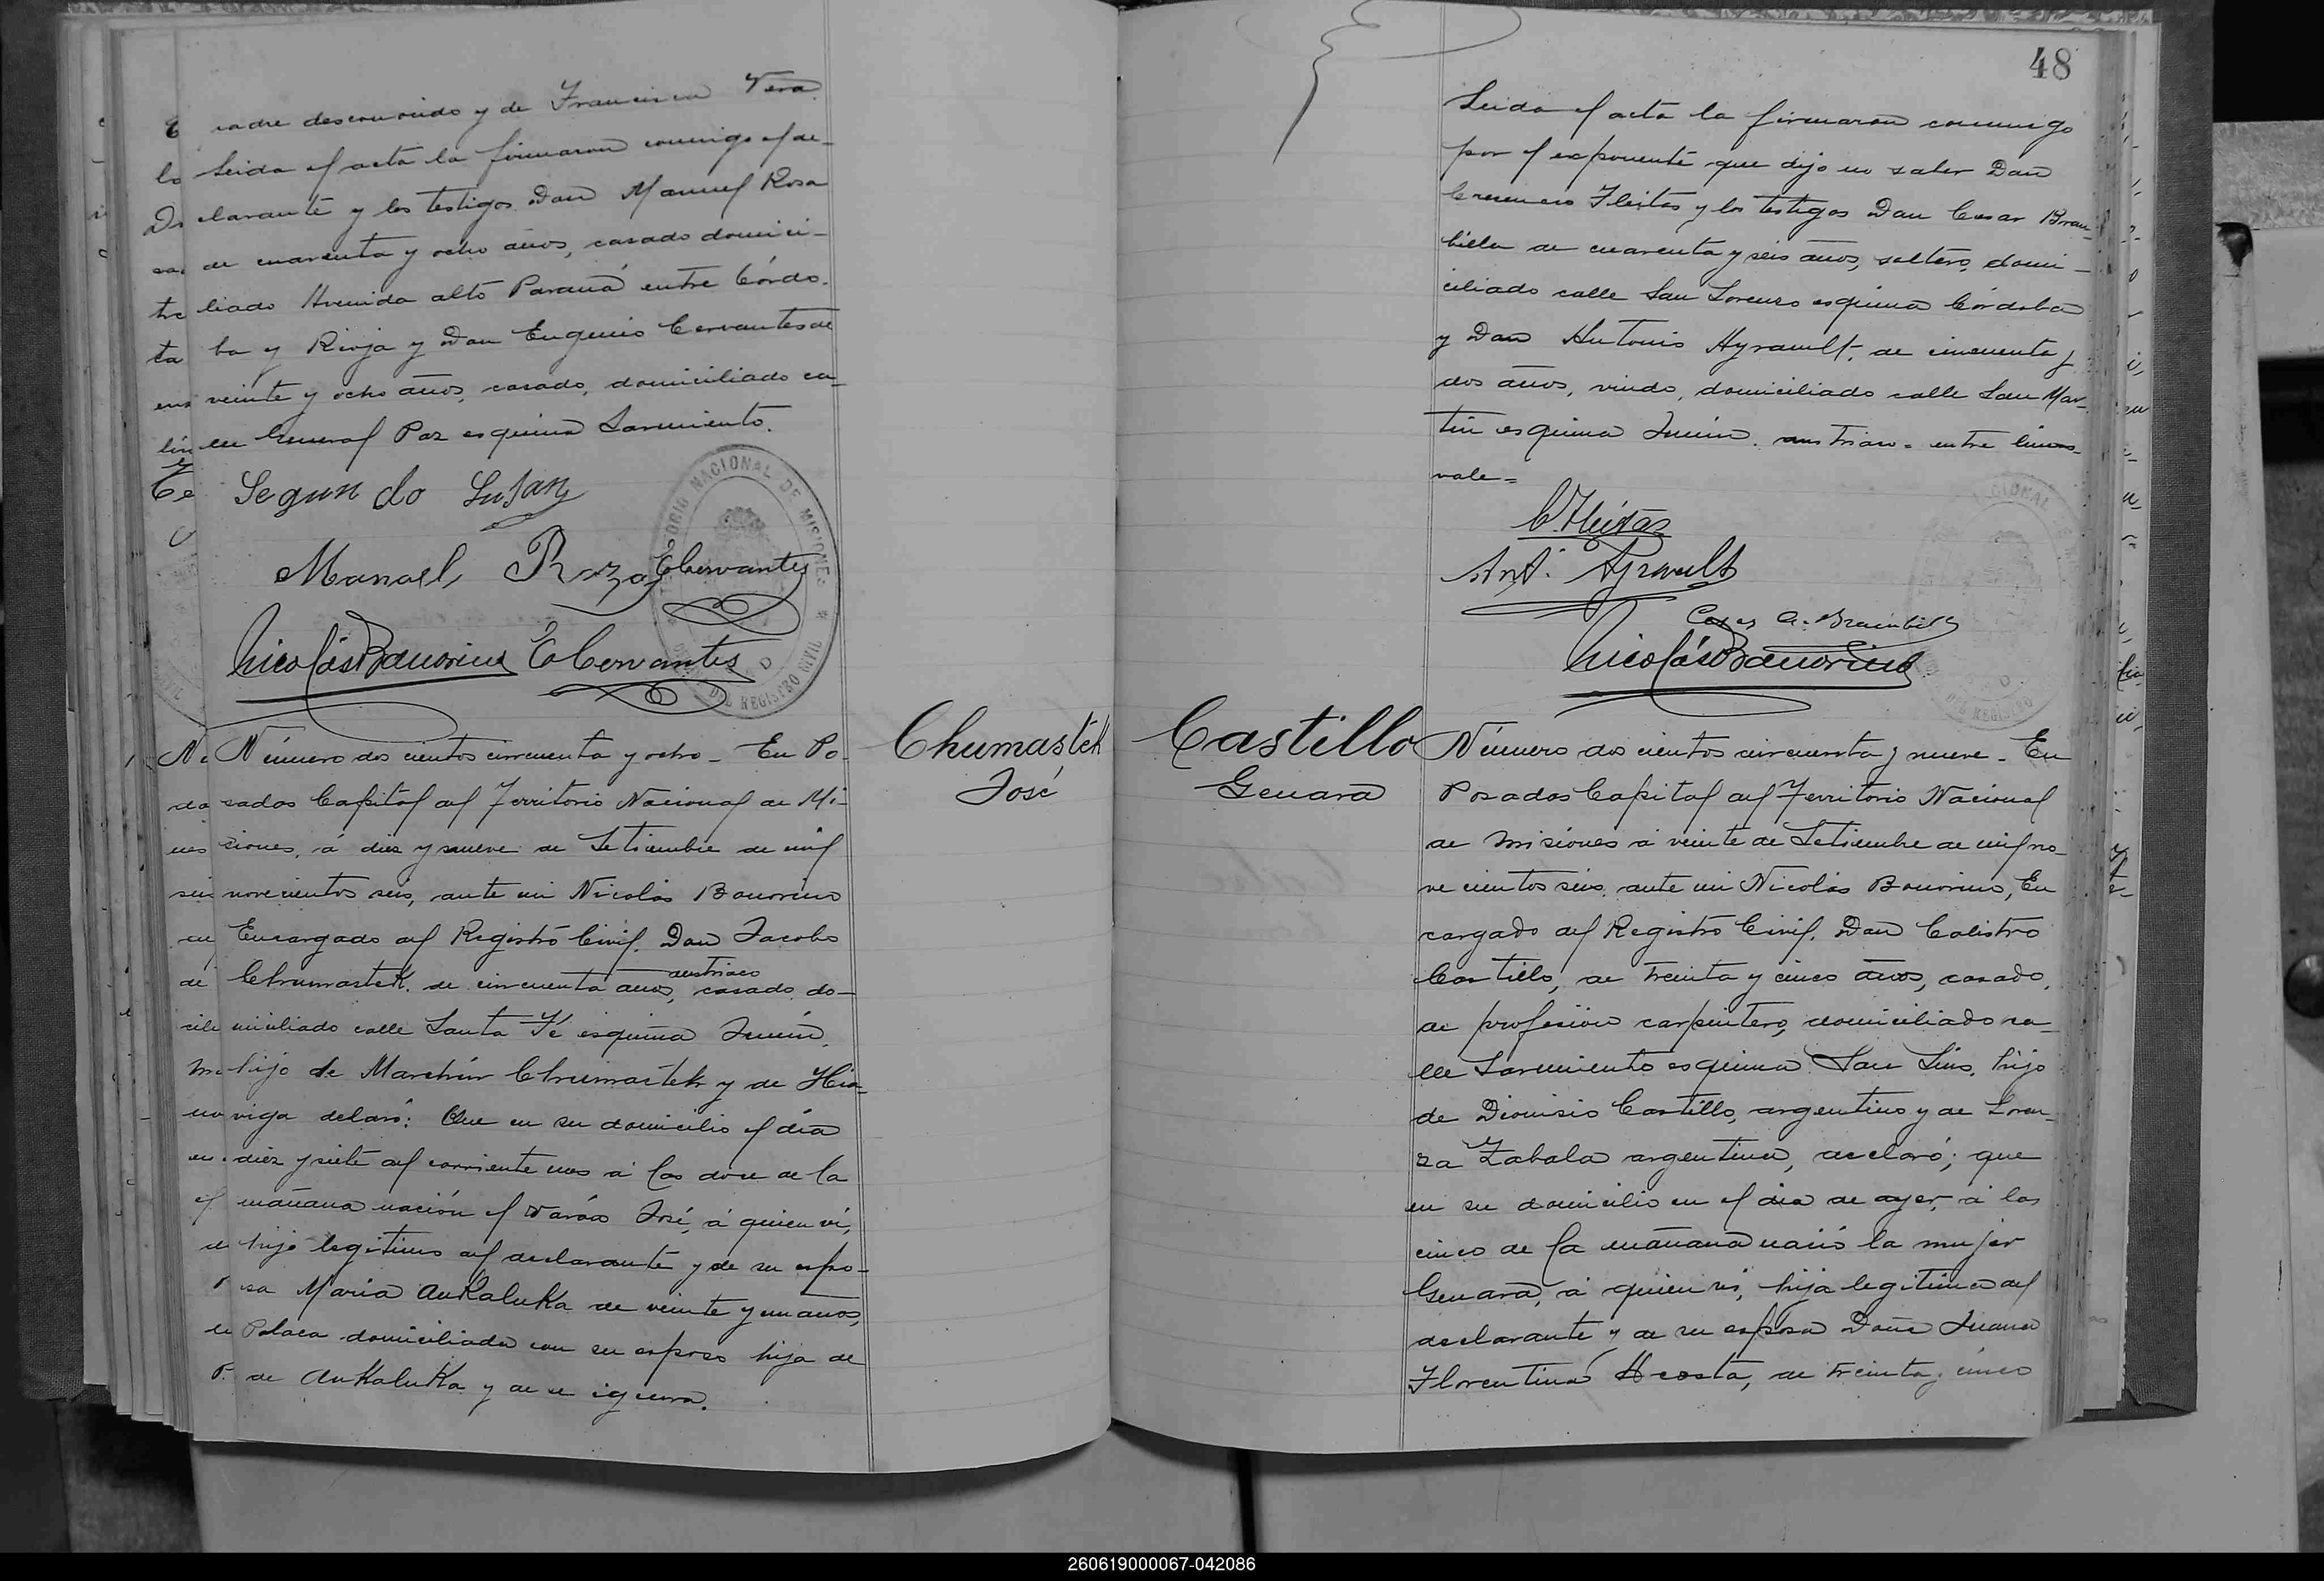 padre desconocido y de Francisca Vera.
Leida el acta la firmaron conmigo el de-
clarante y los testigos Don Manuel Rosa
de cuarenta y ocho años, casado domici-
liado Avenida alto Paraná entre Córdo-
ba y Rioja y Don Eugenio Cervantes de
veinte y ocho años, casado, domiciliado ca-
lle General Paz esquina Sarmiento.
Segundo Lujan
Manoel Roza ECervantes
Nicolás Bonorino ECervantes
TERRITORIO NACIONAL DE MISIONES
DEL REGISTRO CIVIL
Número dos cientos cincuenta y ocho - En Po-
sadas Capital del Territorio Nacional de Mi-
siones, á diez y nueve de Setiembre de mil
novecientos seis, ante mi Nicolás Bonorino
Encargado del Registro Civil, Don Jacobo
austriaco
Chumastek, de cincuenta años, casado, do-
miciliado calle Santa Fé esquina Junín,
hijo de Marchin Chumastek y de
declaró: Que en su domicilio el día
diez y siete del corriente mes á las doce de la
mañana nación el varón José, á quien ví,
hijo legítimo del declarante y de su espo-
sa María Aukaluka de veinte y un años,
Polaca domiciliada con su esposo hija de
de Aukaluka y de se ignora.
Chumastek
José
48
Leida el acta la firmaron conmigo
por el exponente que dijo no saber Don
Crescencio Fleitas y los testigos Don Cesar Bram-
billa de cuarenta y seis años, soltero, domi-
ciliado calle San Lorenzo esquina Córdoba
y Don Antonio Ayrault, de cincuenta y
dos años, viudo, domiciliado calle San Mar-
tin esquina Junín. austriaco = entre lineas-
vale =
C. Fleitas
Ant. Ayrault
Cesar A. Brambilla
Nicolás Bonorino
Castillo
Genara
Número dos cientos cincuenta y nueve - En
Posadas Capital del Territorio Nacional
de Misiones á veinte de Setiembre de mil no-
ve cientos seis, ante mi Nicolás Bonorino, En
cargado del Registro Civil, Don Calistro
Castillo, de treinta y cinco años, casado,
de profesion carpintero, domiciliado ca-
lle Sarmiento esquina San Luis, hijo
de Dionisio Castillo, argentino y de Loren-
za Zabala argentina, declaró; que
en su domicilio en el dia de ayer, á las
cinco de la mañana nació la mujer
Genara, á quien ví, hija legitima del
declarante y de su esposa Doña Juana
Florentina Acosta, de treinta y cinco
260619000067-042086